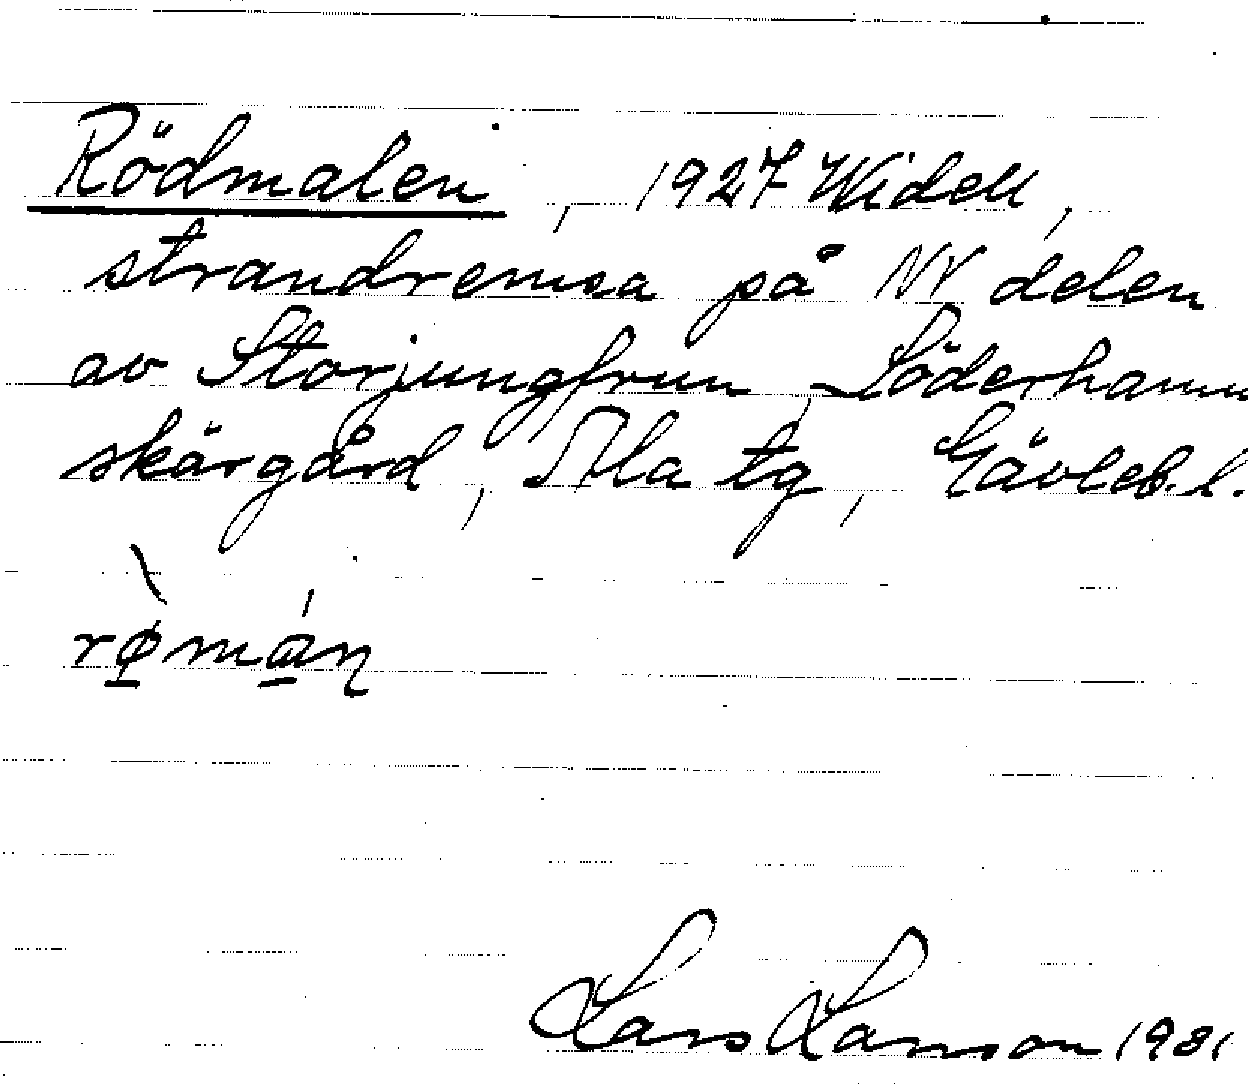 Rödmalen, 1927 Widell,
strandremsa på NV delen
av Storjungfrun, Söderhamns
skärgård, Ala tg, Gävleb.l.
rø̱̀má̱n
Lars Larsson 1981